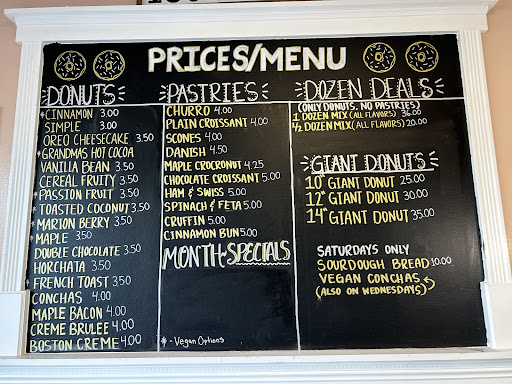 PRICES/MENU
DONUTS
*CINNAMON 3.00
SIMPLE 3.00
OREO CHEESECAKE 3.50
*GRANDMAS HOT COCOA
VANILLA BEAN 3.50
CEREAL FRUITY 3.50
*PASSION FRUIT 3.50
*TOASTED COCONUT 3.50
*MARION BERRY 3.50
*MAPLE 3.50
DOUBLE CHOCOLATE 3.50
HORCHATA 3.50
*FRENCH TOAST 3.50
CONCHAS 4.00
MAPLE BACON 4.00
CREME BRULEE 4.00
BOSTON CREME 4.00
PASTRIES
CHURRO 4.00
PLAIN CROISSANT 4.00
SCONES 4.00
DANISH 4.50
MAPLE CROCRONUT 4.25
CHOCOLATE CROISSANT 5.00
HAM & SWISS 5.00
SPINACH & FETA 5.00
CRUFFIN 5.00
CINNAMON BUN 5.00
MONTH-SPECIALS
* - Vegan Options
DOZEN DEALS
(ONLY DONUTS. NO PASTRIES)
1 DOZEN MIX (ALL FLAVORS) 36.00
½ DOZEN MIX (ALL FLAVORS) 20.00
GIANT DONUTS
10" GIANT DONUT 25.00
12" GIANT DONUT 30.00
14" GIANT DONUT 35.00
SATURDAYS ONLY
SOURDOUGH BREAD 10.00
VEGAN CONCHAS
(ALSO ON WEDNESDAYS)